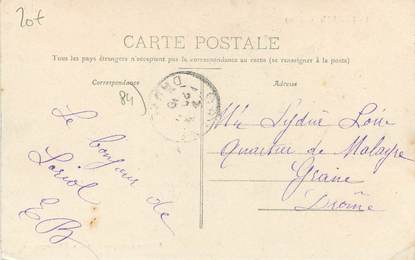 20f
CARTE POSTALE
Tous les pays étrangers n'acceptent pas la correspondance au recto (se renseigner à la poste)
Correspondance
Adresse
84
Le bonjour de
Loriol
EB
Lydia
Quartier de Malayre
Grane
Drôme